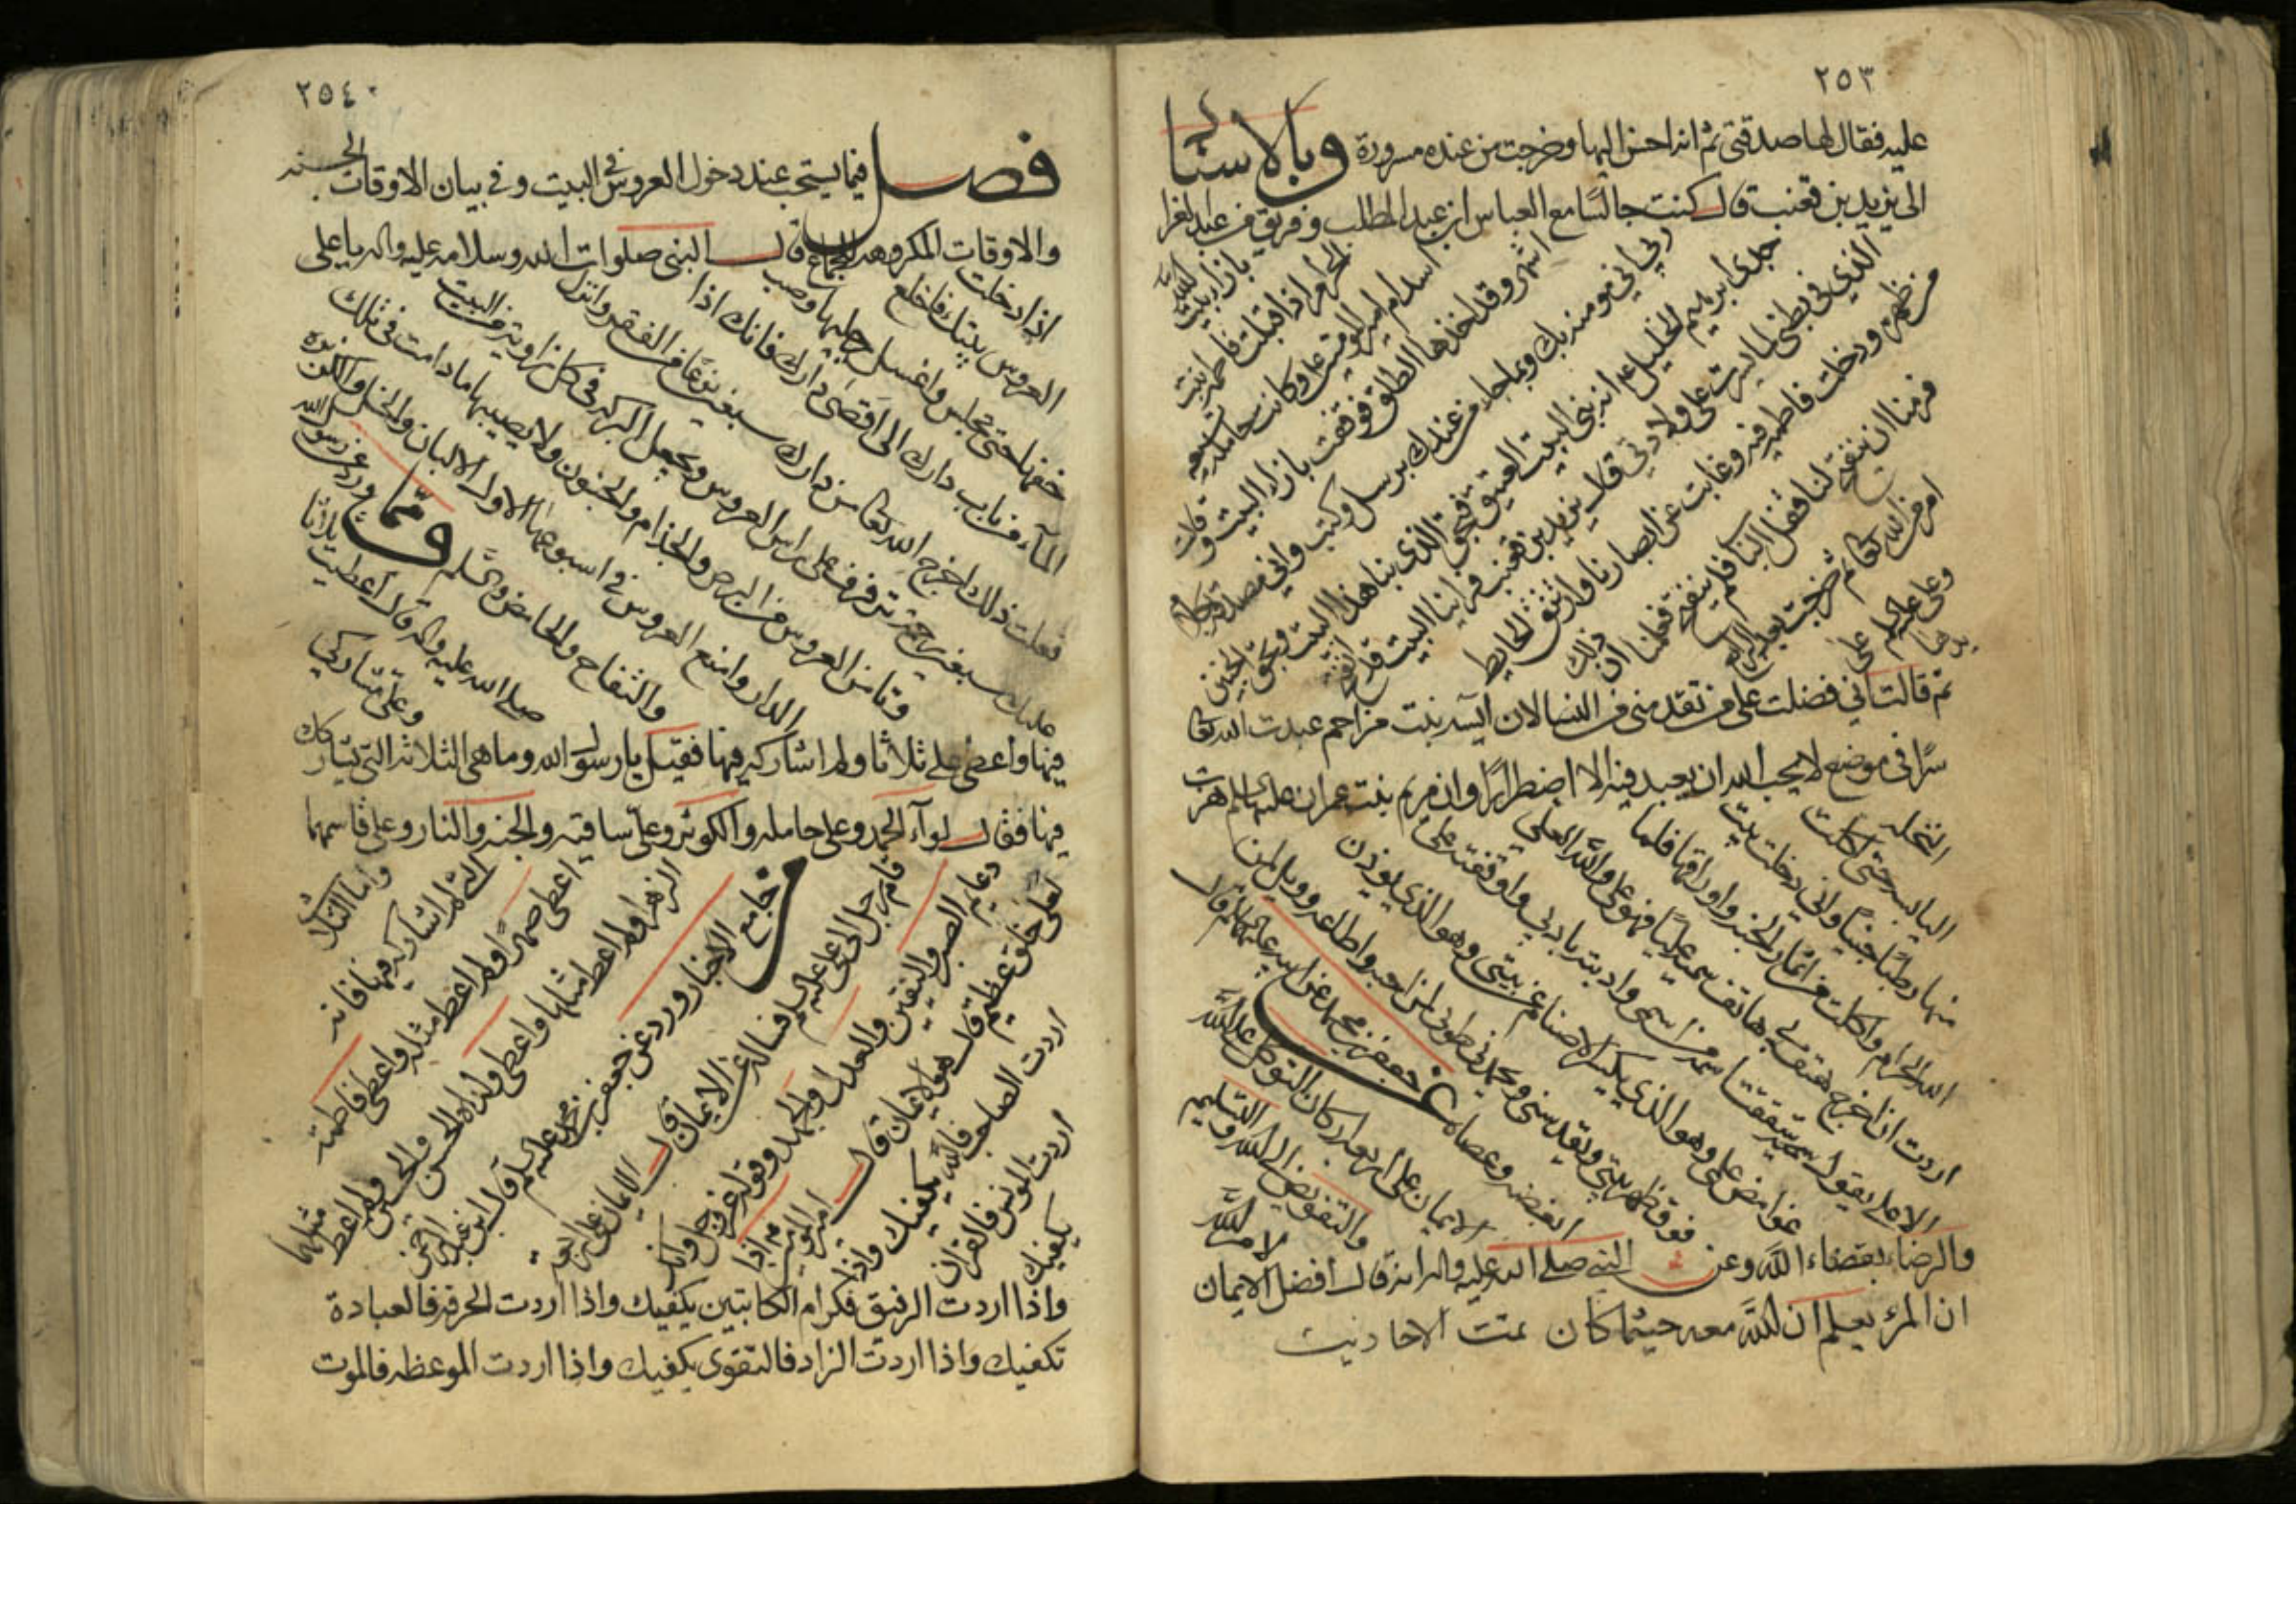 ٢٥٣
عليه فقال لها صدقتي ثم انه احسن اليها وخرجت من عنده مسرورة وبالاسناد
الى يزيد بن قعنب قال كنت جالسًا مع العباس ابن عبد المطلب وفريق من عبد العزا
بازاء بيت الله
الحرام اذ اقبلت فاطمه بنت
اسد ام امير المومنين على وكانت حامله به تسعه
اشهر وقد اخذها الطلق فوقفت بازاء البيت وقالت
ربي اني مومنه بك وبما جاء من عندك من رسل وكتب واني مصدقه بكلام
جدى ابرهيم الخليل وانه بنى البيت العتيق فبحق الذى بنا هذا البيت وبحق الجنين
الذي في بطني لما يسرت على ولادتي قال يزيد بن قعنب فراينا البيت قد انفتح
من ظهره ودخلت فاطمه فيه وغابت عن ابصارنا والتزق الحايط
فرمنا ان ينفتح لنا قفل الباب فلم ينفتح فعلمنا ان ذلك
امر من الله تعالى ثم خرجت بعد الرابع
وعلى يدها على عليه السلم
ثم قالت اني فضلت على من تقدمني من النسا لان آسيه بنت مزاحم عبدت الله تعالى
سرًا في موضع لا يحب الله ان يعبد فيه الا اضطرارًا وان مريم بنت عمران عليها السلم هزت
النخله
اليابسه حتى اكلت
منها رطبًا جنيًا واني دخلت بيت
الله الحرام واكلت من اثمار الجنه واوراقها فلما
اردت ان اخرج هتف بي هاتف سميه عليًا فهو على والله العلي
الاعلى يقول اني شققت اسمه من اسمي وادبته بادبي واوقفته على
غوامض علمي وهو الذي يكسر الاصنام في بيتي وهو الذي يوذن
فوق ظهر بيتي ويقدسني ويمجدني طوبى لمن احبه واطاعه وويل لمن
ابغضه وعصاه عن جعفر بن محمد عن ابيه عليهما السلم قال
الايمان على اربعه اركان التوكل على الله
والتفويض الى الله والتسليم
لامر الله
والرضاء بقضاء الله وعن النبي صلى الله عليه واله انه قال افضل الايمان
ان المرء يعلم ان الله معه حيثما كان تمت الاحاديث
٢٥٤
فصل فيما يستحب عند دخول العروس في البيت وفي بيان الاوقات الحسنه
والاوقات المكروهه للجماع قال النبى صلوات الله وسلامه عليه واله يا على
اذا دخلت
العروس بيتك فاخلع
خفها حتى تجلس واغسل رجليها وصب
المآء من باب دارك الى اقصى دارك فانك اذا
فعلت ذلك اخرج الله تعالى من دارك سبعين نوعًا من الفقر وانزل
عليك سبعين رحمة ترفرف على راس العروس وتجعل البركه في كل زاويه من البيت
وتامن العروس من البرص والجذام والجنون ولا يصيبها ما دامت في تلك
الدار وامنع العروس في اسبوعها الاول الالبان والخل والكزبره
والتفاح والحامض والسلم ومما ورد عن رسول الله
صلى الله عليه واله قال اعطيت ثلاثًا
وعلى مشاركي
فيها واعطى على ثلاثا ولم اشاركه فيها فقيل يا رسول الله وما هي الثلاثه التي يشاركك
فيها فقال لوآء الحمد وعلى حامله والكوثر وعلى ساقيه والجنه والنار وعلى قاسمها
واما الثلاث
التي لم اشاركه فيها فانه
اعطى صهرًا ولم اعط مثله واعطى فاطمة
الزهرا ولم اعط مثلها واعطى ولداه الحسن والحسين ولم اعط مثلهما
من جامع الاخبار ورد عن جعفر بن محمد عليه السلم قال
قام رجل الى على عليه السلم فساله عن الايمان قال الايمان على اربعة
دعايم الصبر واليقين والعدل والجهد وقوله عز وجل وانك
لعلى خلق عظيم قال هو الايمان قال امير المومنين اذا
اردت الصاحب فالله يكفيك واذا
اردت المونس فالقران
يكفيك
واذا اردت الرفيق فكرام الكاتبين يكفيك واذا اردت الحرفه فالعبادة
تكفيك واذا اردت الزاد فالتقوى يكفيك واذا اردت الموعظه فالموت